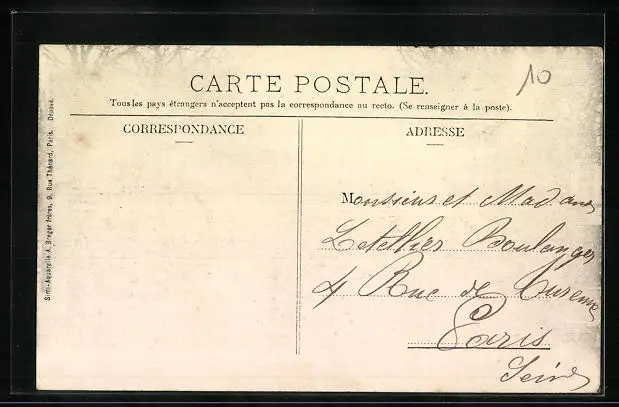 CARTE POSTALE.
10
Tous les pays étrangers n'acceptent pas la correspondance au recto. (Se renseigner à la poste).
CORRESPONDANCE
ADRESSE
Simi-Aquarelle A. Breger frères, 9, Rue Thénard, Paris. Déposé.
Monsieur et Madame
Letellier Boulanger
4 Rue de Turenne
Paris
Seine